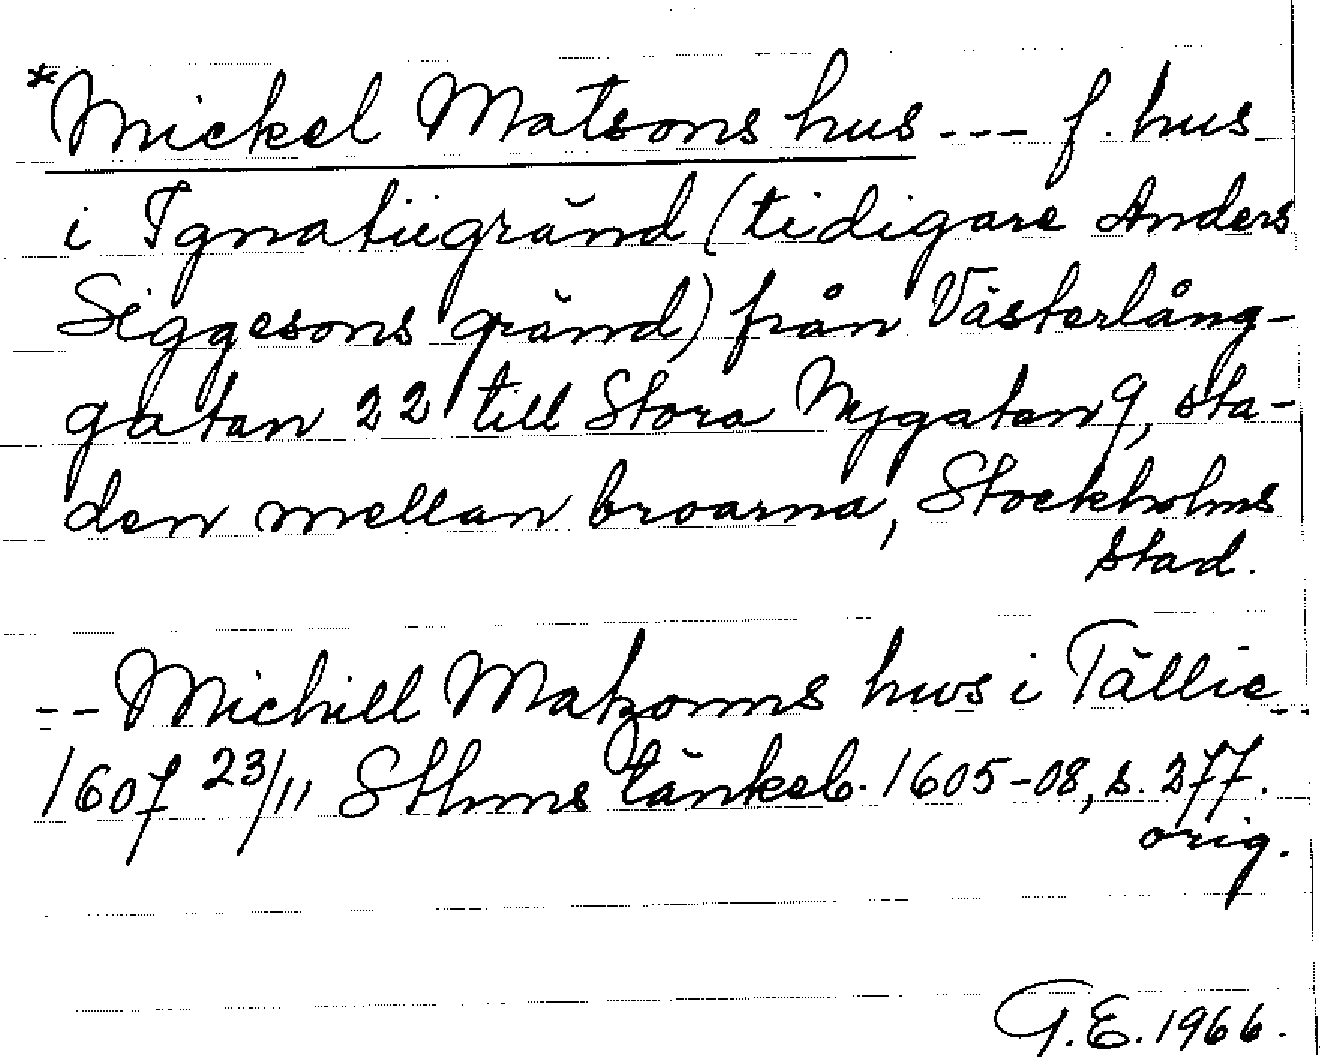 *Mickel Matsons hus --- f. hus
i Ignatiigränd (tidigare Anders
Siggesons gränd) från Västerlång-
gatan 22 till Stora Nygatan 9, sta-
den mellan broarna, Stockholms
stad.
-- Michill Matzonns hws i Tällie --
1607 23/11 Sthms tänkeb. 1605-08, s. 277.
orig.
G.E. 1966.